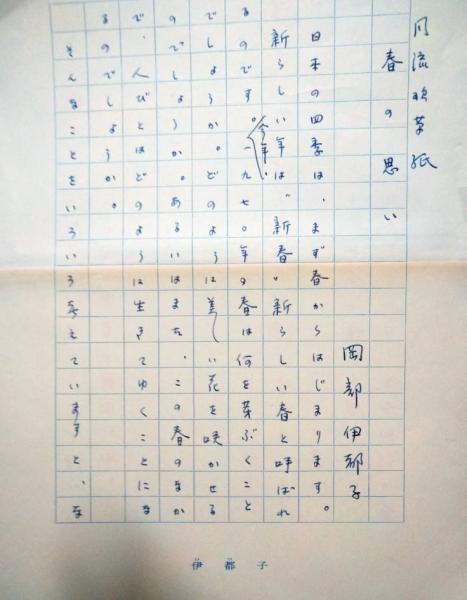 流 草紙
春の思い
岡部伊都子
日本の四季は、まず春からはじまります。
新らしい年は〝新春〟新らしい春と呼ばれ
るのです。今年、一九七〇年の春は何を芽ぶくこと
でしょうか。どのように美しい花を咲かせる
のでしょうか。あるいはまた、この春のなか
で、人びとはどのように生きてゆくことにな
るのでしょうか。
そんなことをいろいろ考えていますと、な
伊都子